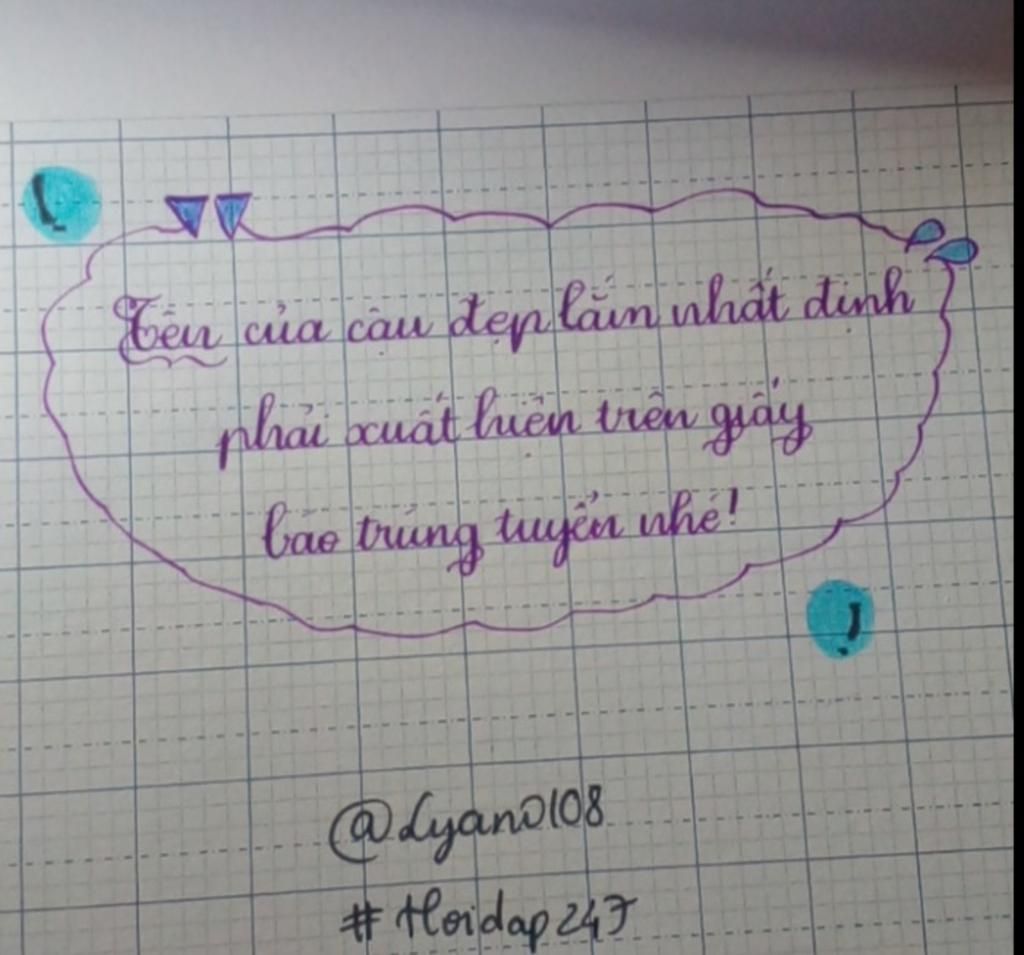 Tên của cậu đẹp lắm nhất định
phải xuất hiện trên giấy
báo trúng tuyển nhé!
@Lyano108
#Hoidap247